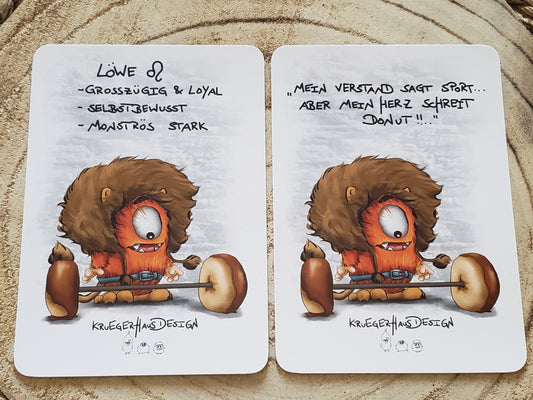 LÖWE ♌
- GROSSZÜGIG & LOYAL
- SELBSTBEWUSST
- MONSTRÖS STARK
KRUEGERHAUSDESIGN
„MEIN VERSTAND SAGT SPORT...
ABER MEIN HERZ SCHREIT
DONUT!!..."
KRUEGERHAUSDESIGN